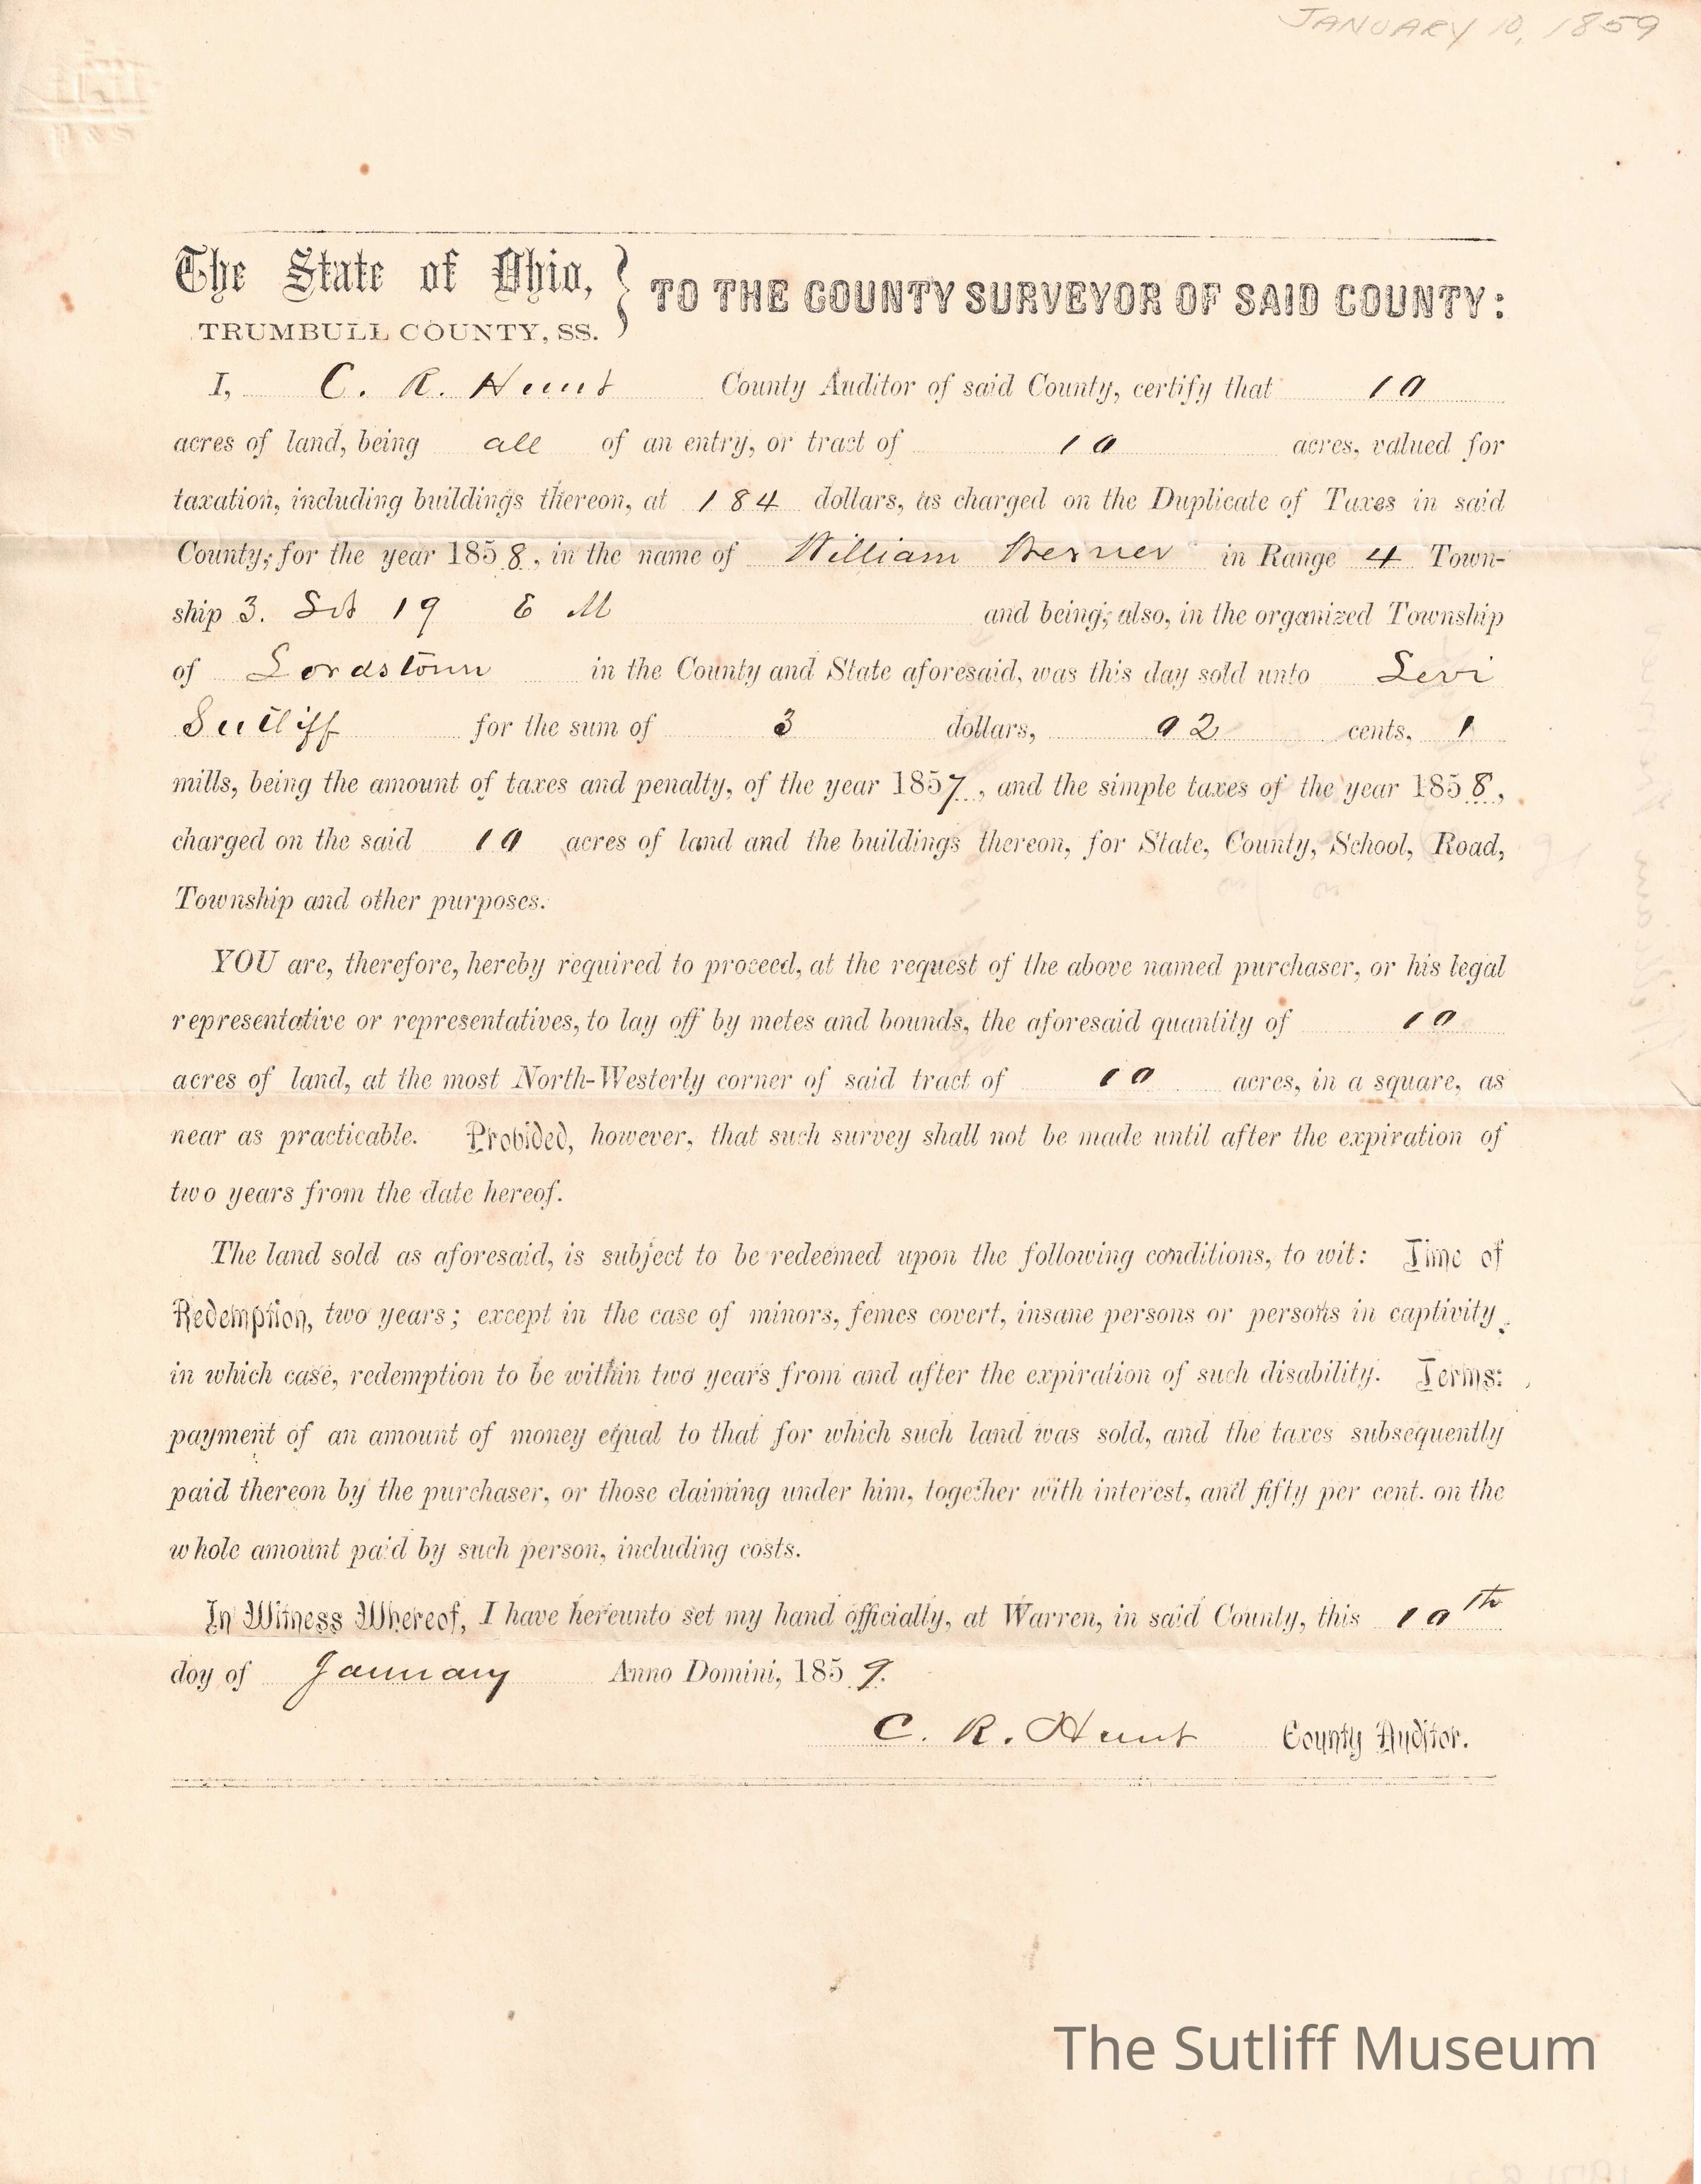 JANUARY 10, 1859
The State of Ohio, } TO THE COUNTY SURVEYOR OF SAID COUNTY:
TRUMBULL COUNTY, SS.
I, C. R. Hunt County Auditor of said County, certify that 10
acres of land, being all of an entry, or tract of 10 acres, valued for
taxation, including buildings thereon, at 184 dollars, as charged on the Duplicate of Taxes in said
County, for the year 1858, in the name of William in Range 4 Town-
ship 3. 19 E M and being, also, in the organized Township
of Lordstown in the County and State aforesaid, was this day sold unto Levi
Sutliff for the sum of 3 dollars, 02 cents, 1
mills, being the amount of taxes and penalty, of the year 1857, and the simple taxes of the year 1858,
charged on the said 10 acres of land and the buildings thereon, for State, County, School, Road,
Township and other purposes.
YOU are, therefore, hereby required to proceed, at the request of the above named purchaser, or his legal
representative or representatives, to lay off by metes and bounds, the aforesaid quantity of 10
acres of land, at the most North-Westerly corner of said tract of 10 acres, in a square, as
near as practicable. Provided, however, that such survey shall not be made until after the expiration of
two years from the date hereof.
The land sold as aforesaid, is subject to be redeemed upon the following conditions, to wit: Time of
Redemption, two years; except in the case of minors, femes covert, insane persons or persons in captivity.
in which case, redemption to be within two years from and after the expiration of such disability. Terms:
payment of an amount of money equal to that for which such land was sold, and the taxes subsequently
paid thereon by the purchaser, or those claiming under him, together with interest, and fifty per cent. on the
whole amount paid by such person, including costs.
In Witness Whereof, I have hereunto set my hand officially, at Warren, in said County, this 10th
doy of January Anno Domini, 1859.
C. R. Hunt County Auditor.
The Sutliff Museum